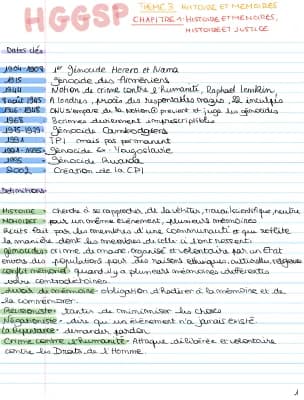 HGGSP
THEME 3: HISTOIRE ET MEMOIRES
CHAPITRE 1: HISTOIRE ET MEMOIRES,
HISTOIRE ET JUSTICE
Dates clés
1904-1908 1er Génocide Herero et Nama
1915 Génocide des Arméniens
1944 Notion de crime contre l'humanité, Raphael Lemkin,
8 août 1945 A Londres, procès des responsables nazis, 22 inculpés
1946-1948 ONU s'empare de la notion prévient et juge les génocides
1968 Crimes deviennent imprescriptibles
1975-1979 Génocide Cambodgiens
1991 TPI mais pas permanent
1991-1995 Génocide ex-Yougoslavie
1995 Génocide Rwanda
2002 Création de la CPI
Définitions
HISTOIRE = cherche à se rapprocher de la vérité, travail scientifique, neutre
MEMOIRES = pour un même événement, plusieurs mémoires.
Récits fait par les membres d'une communauté et qui reflète
la manière dont les membres de celle ci l'ont ressenti.
Génocide = crime de masse organisé et volontaire par un État
envers des populations pour des raisons ethniques, culturelles, religieuses
conflit mémoriel = quand il y a plusieurs mémoires différentes
voire contradictoires.
devoir de mémoire = obligation d'honorer la mémoire et de
la commémorer.
Révisionniste = tenter de minimiser les choses
Négationniste = dire qu'un événement n'a jamais existé
La Repentance = demander pardon
Crime contre l'humanité = Attaque délibérée et volontaire
contre les Droits de l'Homme.
1